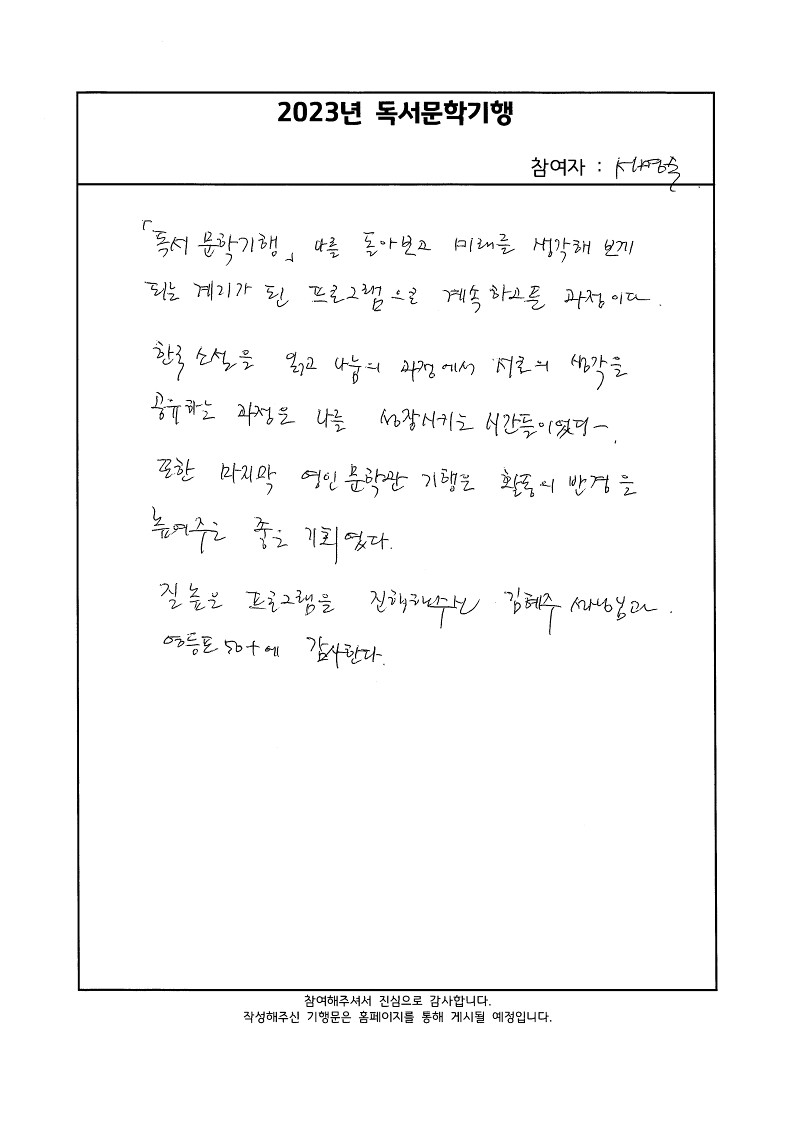 2023년 독서문학기행
참여자 : 서영숙
「독서 문학기행」 나를 돌아보고 미래를 생각해 보게
되는 계기가 된 프로그램으로 계속하고픈 과정이다.
한국소설을 읽고 나눔의 과정에서 서로의 생각을
공유하는 과정은 나를 성장시키는 시간들이었다.
또한 마지막 영인문학관 기행은 활동의 반경을
높여주는 좋은 기회였다.
질 높은 프로그램을 진행해주신 김혜주 선생님과
영등포50+에 감사한다.
참여해주셔서 진심으로 감사합니다.
작성해주신 기행문은 홈페이지를 통해 게시될 예정입니다.